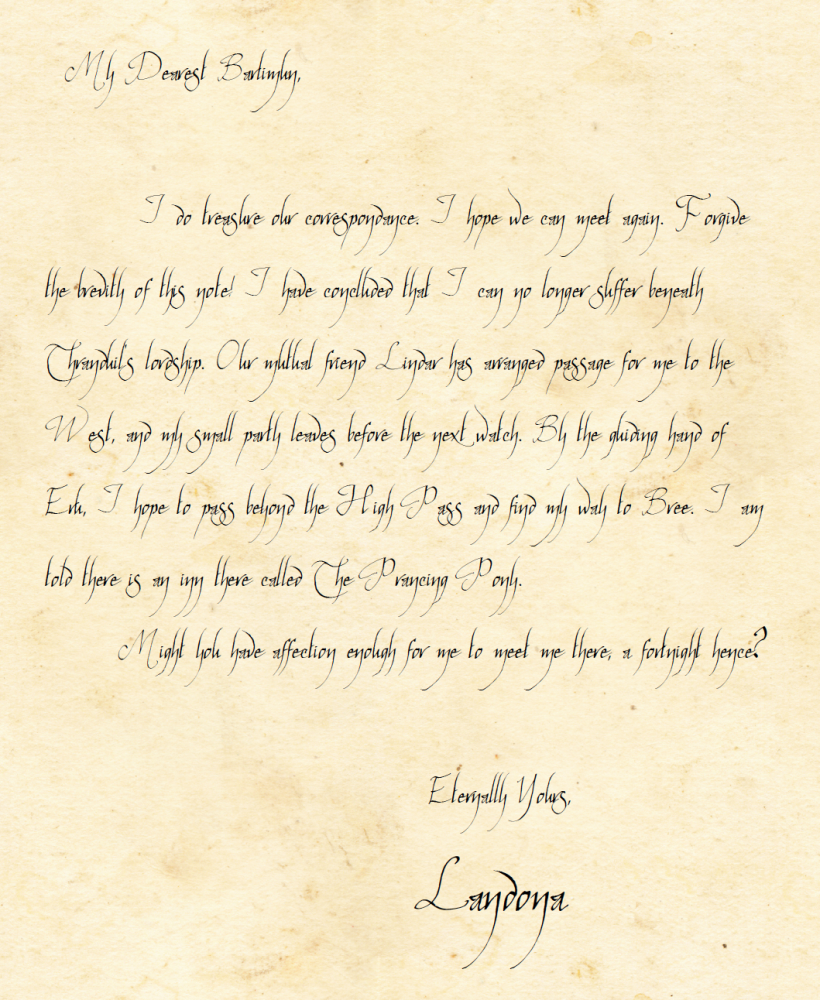 My Dearest Bartimun,
I do treasure our correspondance. I hope we can meet again. Forgive
the brevity of this note! I have concluded that I can no longer suffer beneath
Thranduil's lordship. Our mutual friend Lindar has arranged passage for me to the
West, and my small party leaves before the next watch. By the guiding hand of
Eru, I hope to pass beyond the High Pass and find my way to Bree. I am
told there is an inn there called The Prancing Pony.
Might you have affection enough for me to meet me there, a fortnight hence?
Eternally Yours,
Landona